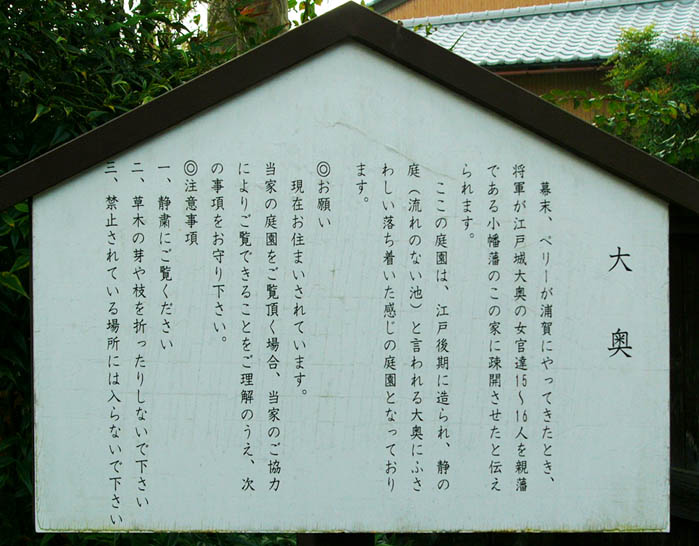 大奥
幕末、ペリーが浦賀にやってきたとき、
将軍が江戸城大奥の女官達15〜16人を親藩
である小幡藩のこの家に疎開させたと伝え
られます。
ここの庭園は、江戸後期に造られ、静の
庭（流れのない池）と言われる大奥にふさ
わしい落ち着いた感じの庭園となっており
ます。
◎お願い
現在お住まいされています。
当家の庭園をご覧頂く場合、当家のご協力
によりご覧できることをご理解のうえ、次
の事項をお守り下さい。
◎注意事項
一、静粛にご覧ください
二、草木の芽や枝を折ったりしないで下さい
三、禁止されている場所には入らないで下さい